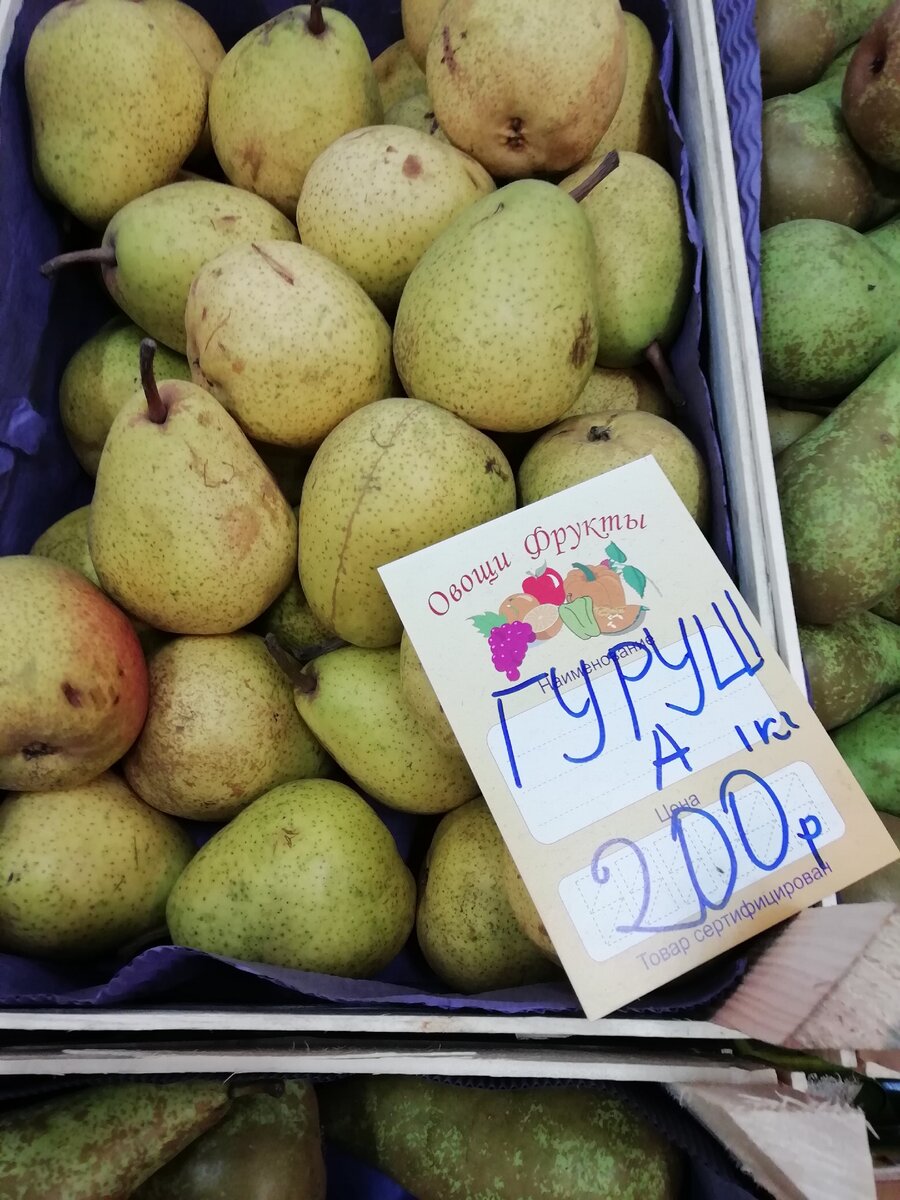 Овощи Фрукты
Наименование
ГУРУШ
А 1кг
Цена
200р
Товар сертифицирован